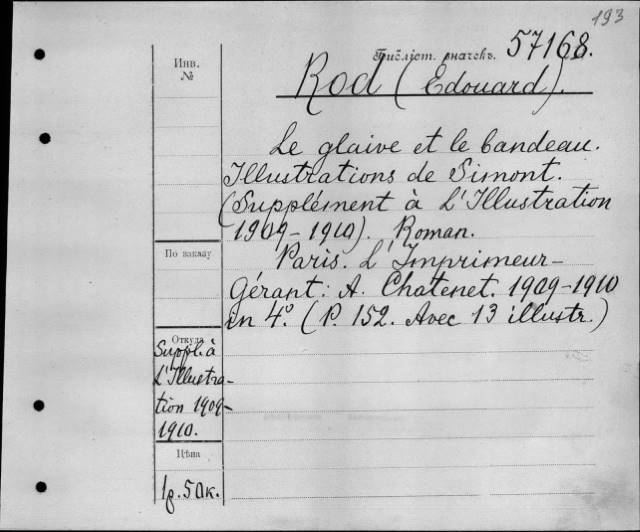 193
Библіот. значекъ. 57168.
Инв.
№
Rod (Edouard).
Le glaive et le bandeau.
Illustrations de Simont.
(Supplément à L'Illustration
1909-1910). Roman.
Paris. L'Imprimeur-
Gérant: A. Chatenet. 1909-1910
in 4º. (P. 152. Avec 13 illustr.)
По заказу
Откуда
Suppl. à
L'Illustra-
tion 1909-
1910.
Цѣна
1р. 50к.